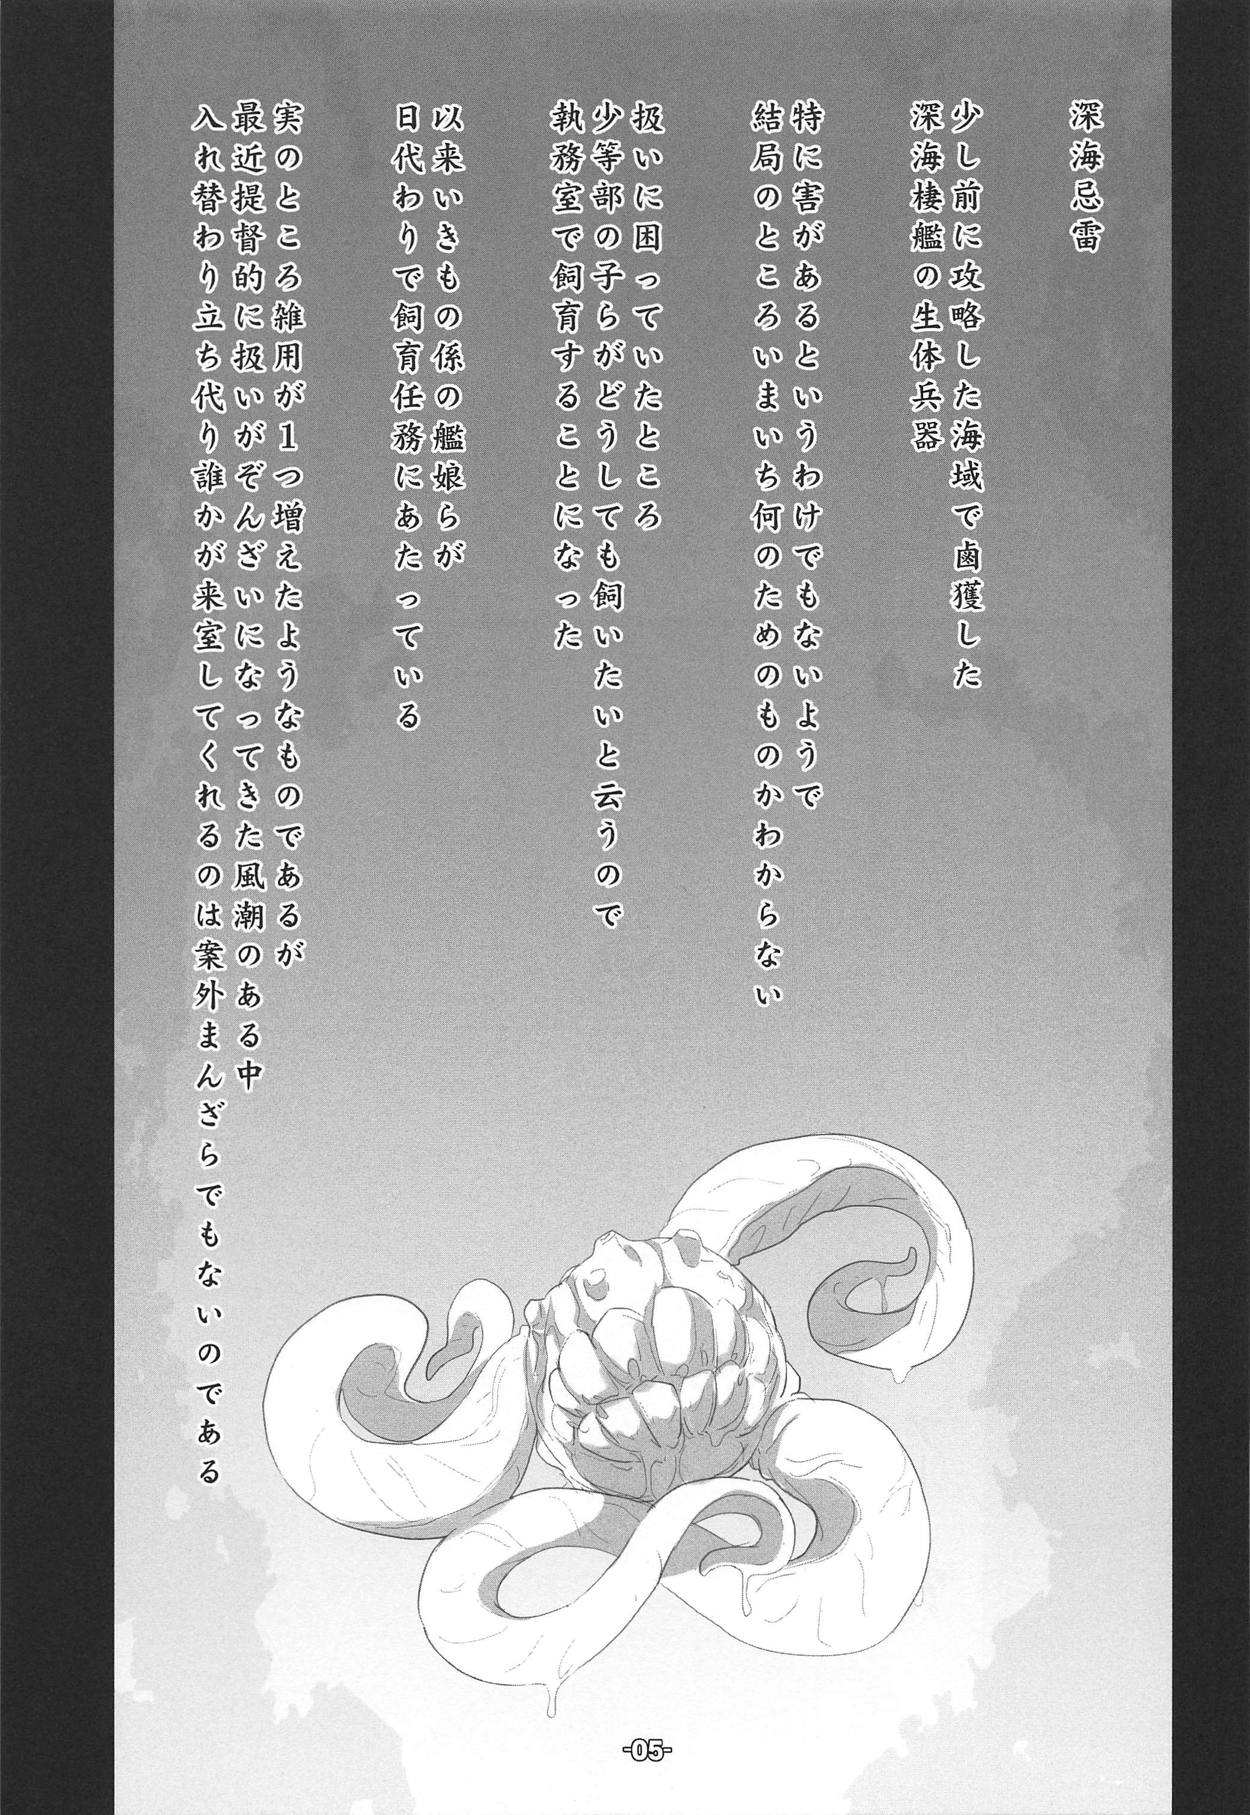 深海忌雷
少し前に攻略した海域で鹵獲した
深海棲艦の生体兵器
特に害があるというわけでもないようで
結局のところいまいち何のためのものかわからない
扱いに困っていたところ
少等部の子らがどうしても飼いたいと云うので
執務室で飼育することになった
以来いきもの係の艦娘らが
日代わりで飼育任務にあたっている
実のところ雑用が1つ増えたようなものであるが
最近提督的に扱いがぞんざいになってきた風潮のある中
入れ替わり立ち代り誰かが来室してくれるのは案外まんざらでもないのである
-05-